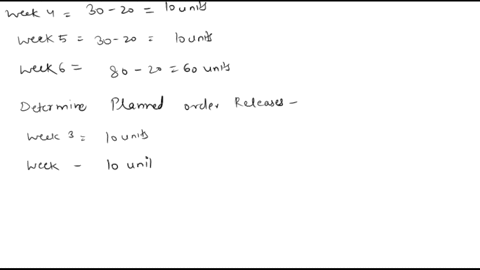 Week 4 = 30 - 20 = 10 units
Week 5 = 30 - 20 = 10 units
Week 6 = 80 - 20 = 60 units
Determine Planned order Releases -
Week 3 = 10 units
Week - 10 unil